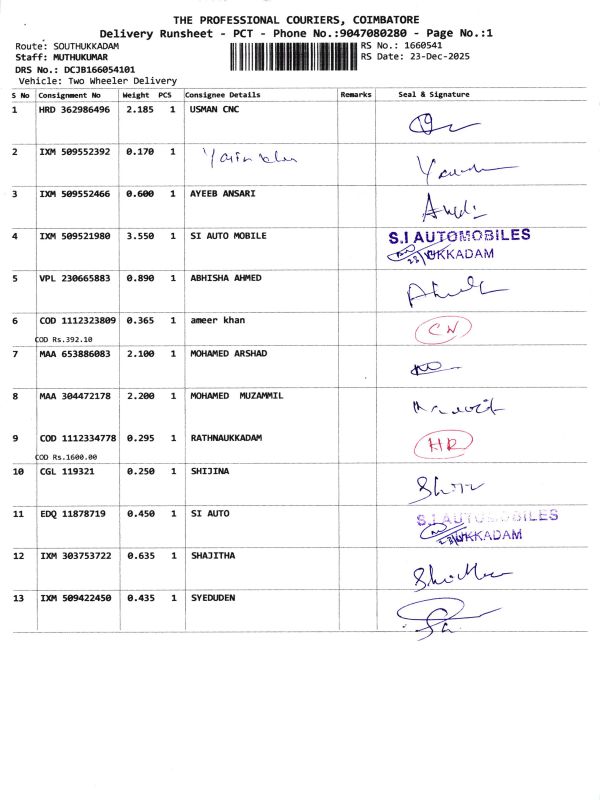 THE PROFESSIONAL COURIERS, COIMBATORE
Delivery Runsheet - PCT - Phone No.:9047080280 - Page No.:1
Route: SOUTHUKKADAM
RS No.: 1660541
Staff: MUTHUKUMAR
RS Date: 23-Dec-2025
DRS No.: DCJB166054101
Vehicle: Two Wheeler Delivery
S No Consignment No Weight PCS Consignee Details Remarks Seal & Signature
1 HRD 362986496 2.185 1 USMAN CNC
2 IXM 509552392 0.170 1
3 IXM 509552466 0.600 1 AYEEB ANSARI
4 IXM 509521980 3.550 1 SI AUTO MOBILE S.I AUTOMOBILES
UKKADAM
5 VPL 230665883 0.890 1 ABHISHA AHMED
6 COD 1112323809 0.365 1 ameer khan CN
COD Rs.392.10
7 MAA 653886083 2.100 1 MOHAMED ARSHAD
8 MAA 304472178 2.200 1 MOHAMED MUZAMMIL
9 COD 1112334778 0.295 1 RATHNAUKKADAM HR
COD Rs.1600.00
10 CGL 119321 0.250 1 SHIJINA
11 EDQ 11878719 0.450 1 SI AUTO S.I AUTOMOBILES
UKKADAM
12 IXM 303753722 0.635 1 SHAJITHA
13 IXM 509422450 0.435 1 SYEDUDEN